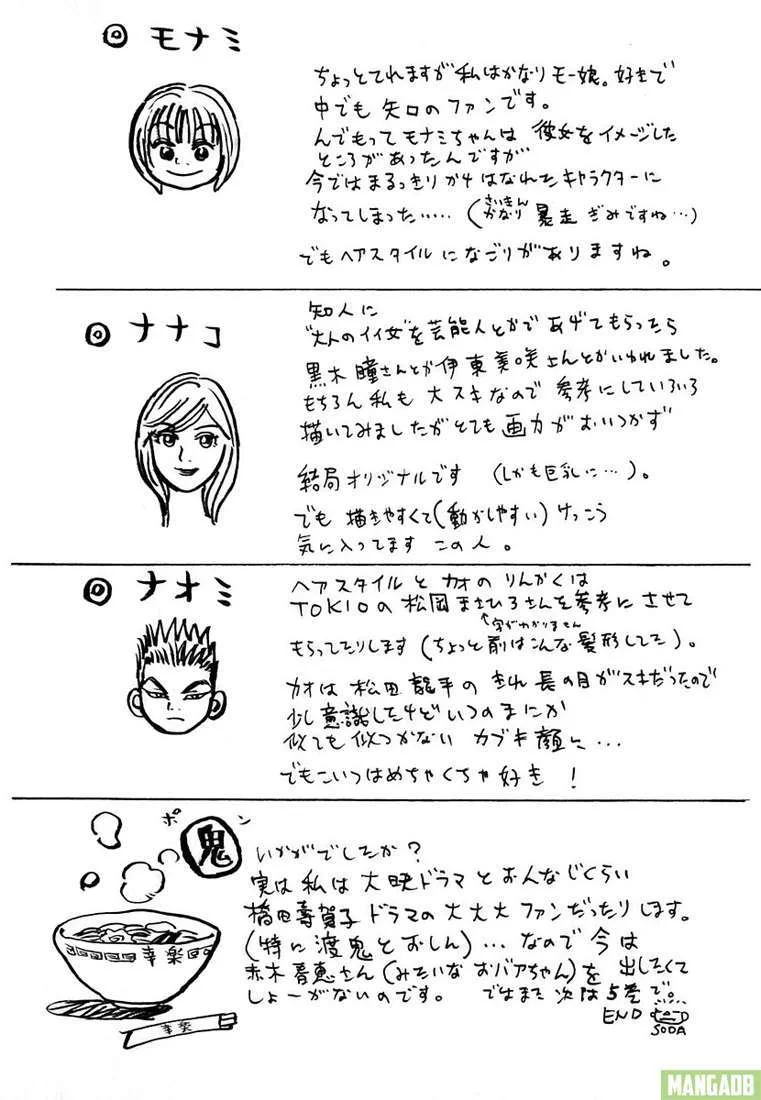 ◎ モナミ
ちょっとてれますが私はかなりモー娘。好きで
中でも矢口のファンです。
んでもってモナミちゃんは 彼女をイメージした
ところがあったんですが
今ではまるっきりかけはなれたキャラクターに
なってしまった‥‥‥(さいきんかなり 暴走ぎみですね…)
でもヘアスタイルになごりがありますね。
◎ ナナコ
知人に
"大人のイイ女"を芸能人とかであげてもらったら
黒木瞳さんとか伊東美咲さんとかいわれました。
もちろん私も大スキなので参考にしていろいろ
描いてみましたがとても画力がおいつかず
結局オリジナルです (しかも巨乳に…)。
でも 描きやすくて(動かしやすい)けっこう
気に入ってます この人。
◎ ナオミ
ヘアスタイルとカオのりんかくは
TOKIOの松岡まさひろさんを参考にさせて
↑字がわかりません
もらってたりします(ちょっと前はこんな髪形してた)。
カオは松田龍平のきれ長の目がスキだったので
少し意識したけどいつのまにか
似ても似つかない カブキ顔に…
でもこいつはめちゃくちゃ好き!
ポン
鬼
いかがでしたか?
実は私は大映ドラマとおんなじくらい
橋田壽賀子ドラマの大大大ファンだったりします。
(特に渡鬼とおしん)…なので今は
赤木春恵さん(みたいなおバアちゃん)を出したくて
しょーがないのです。 ではまた次は5巻で。
END
SODA
幸楽
幸楽
MANGADB